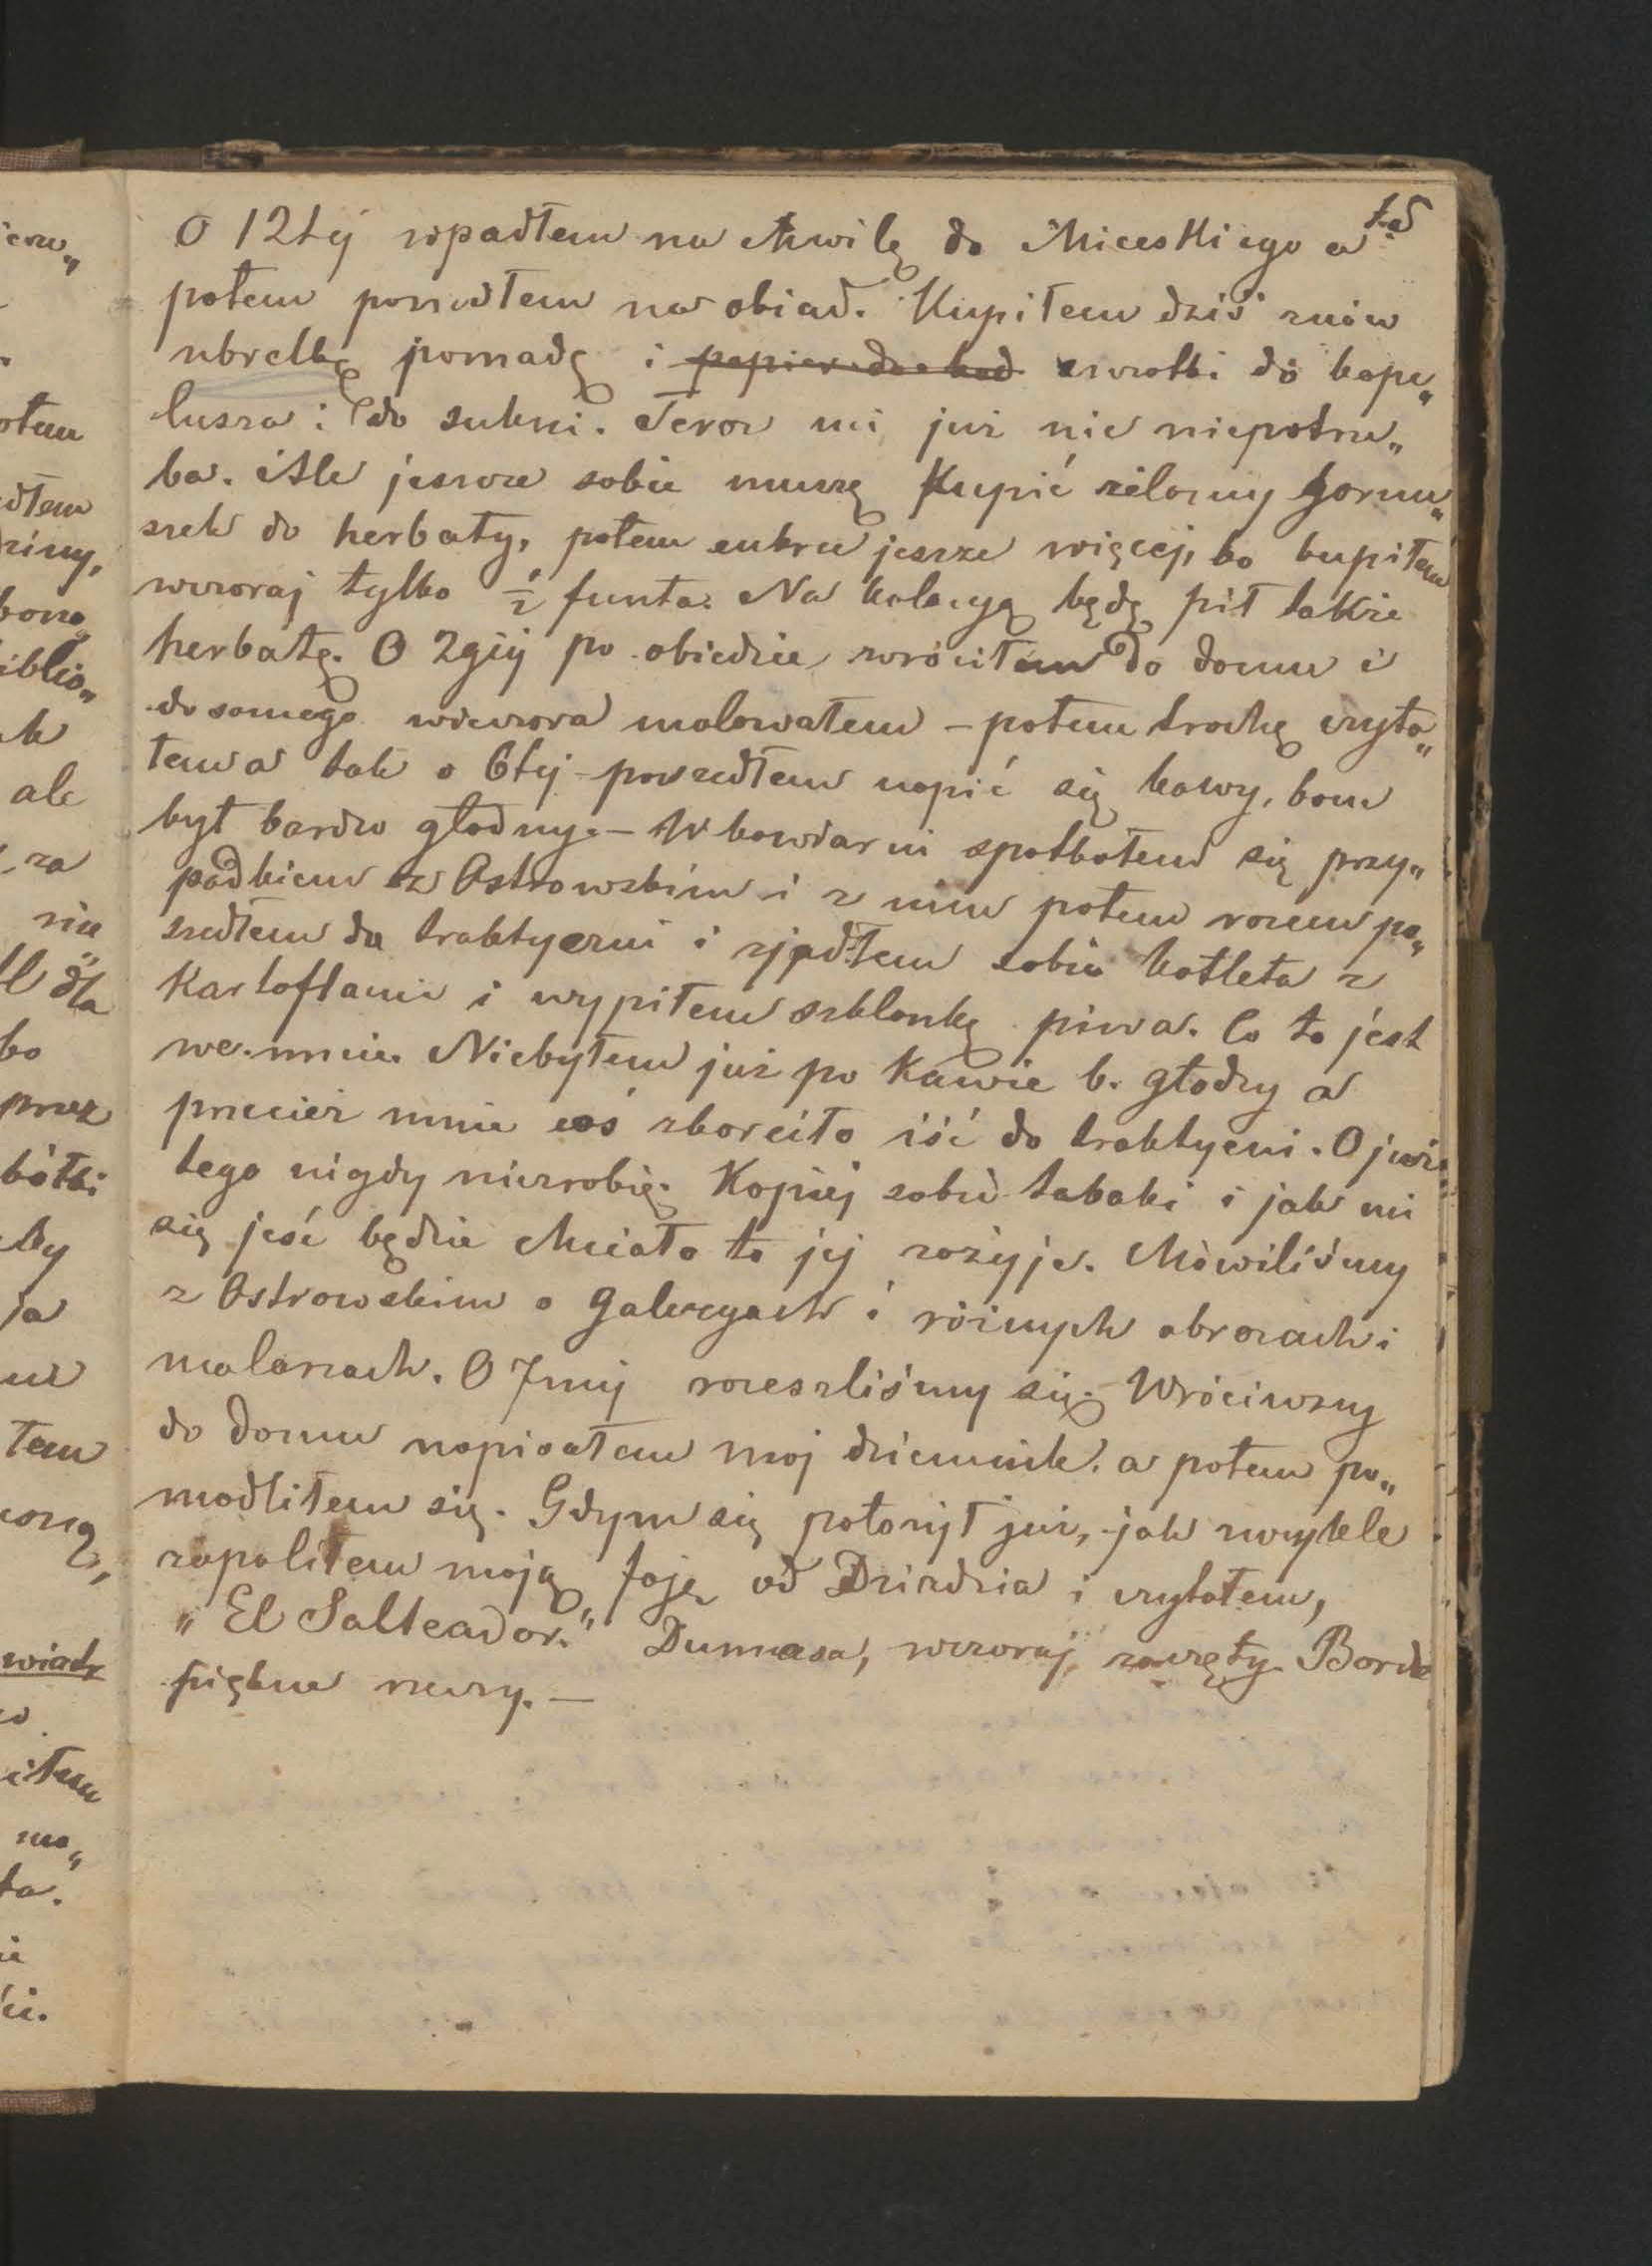 O 12tej wpadłem na chwilę do Miceskiego a
potem poszedłem na obiad. Kupiłem dziś znów
ubrelkę pomadę i szczotki do kape„
lusza i do sukni. Teraz mi już nic niepotrze„
ba. Ale jeszcze sobie muszę kupić żelazny garnu„
szek do herbaty, potem cukru jeszcze więcej, bo kupiłem
wczoraj tylko ½ funta. Na kolacyą będę pił także
herbatę. O 2giej po obiedzie wróciłem do domu i
do samego wieczora malowałem – potem trochę czyta„
łem a tak o 6tej poszedłem napić się kawy, bom
był bardzo głodny. – W kawiarni spotkałem się przy„
padkiem z Ostrowskim i z nim potem razem po„
szedłem do traktyerni i zjadłem sobie kotleta z
kartoflami i wypiłem szklankę piwa. Co to jest
we mnie. Niebyłem już po kawie b. głodny a
przecież mnie coś skorciło iść do traktyerni. O już
tego nigdy niezrobię. Kopiej sobie tabaki i jak mi
się jeść będzie chciało to jej zażyję. Mówiliśmy
z Ostrowskim o galeryach i różnych obrazach i
malarzach. O 7mej rozeszliśmy się. Wróciwszy
do domu napisałem moj dziennik. a potem po„
modliłem się. Gdym się położył już, jak zwykle
zapaliłem moją faję od Dziadzia i czytałem,
„El Salteador." Dumasa, wczoraj zaczęty. Bardz
piękne rzeczy. —